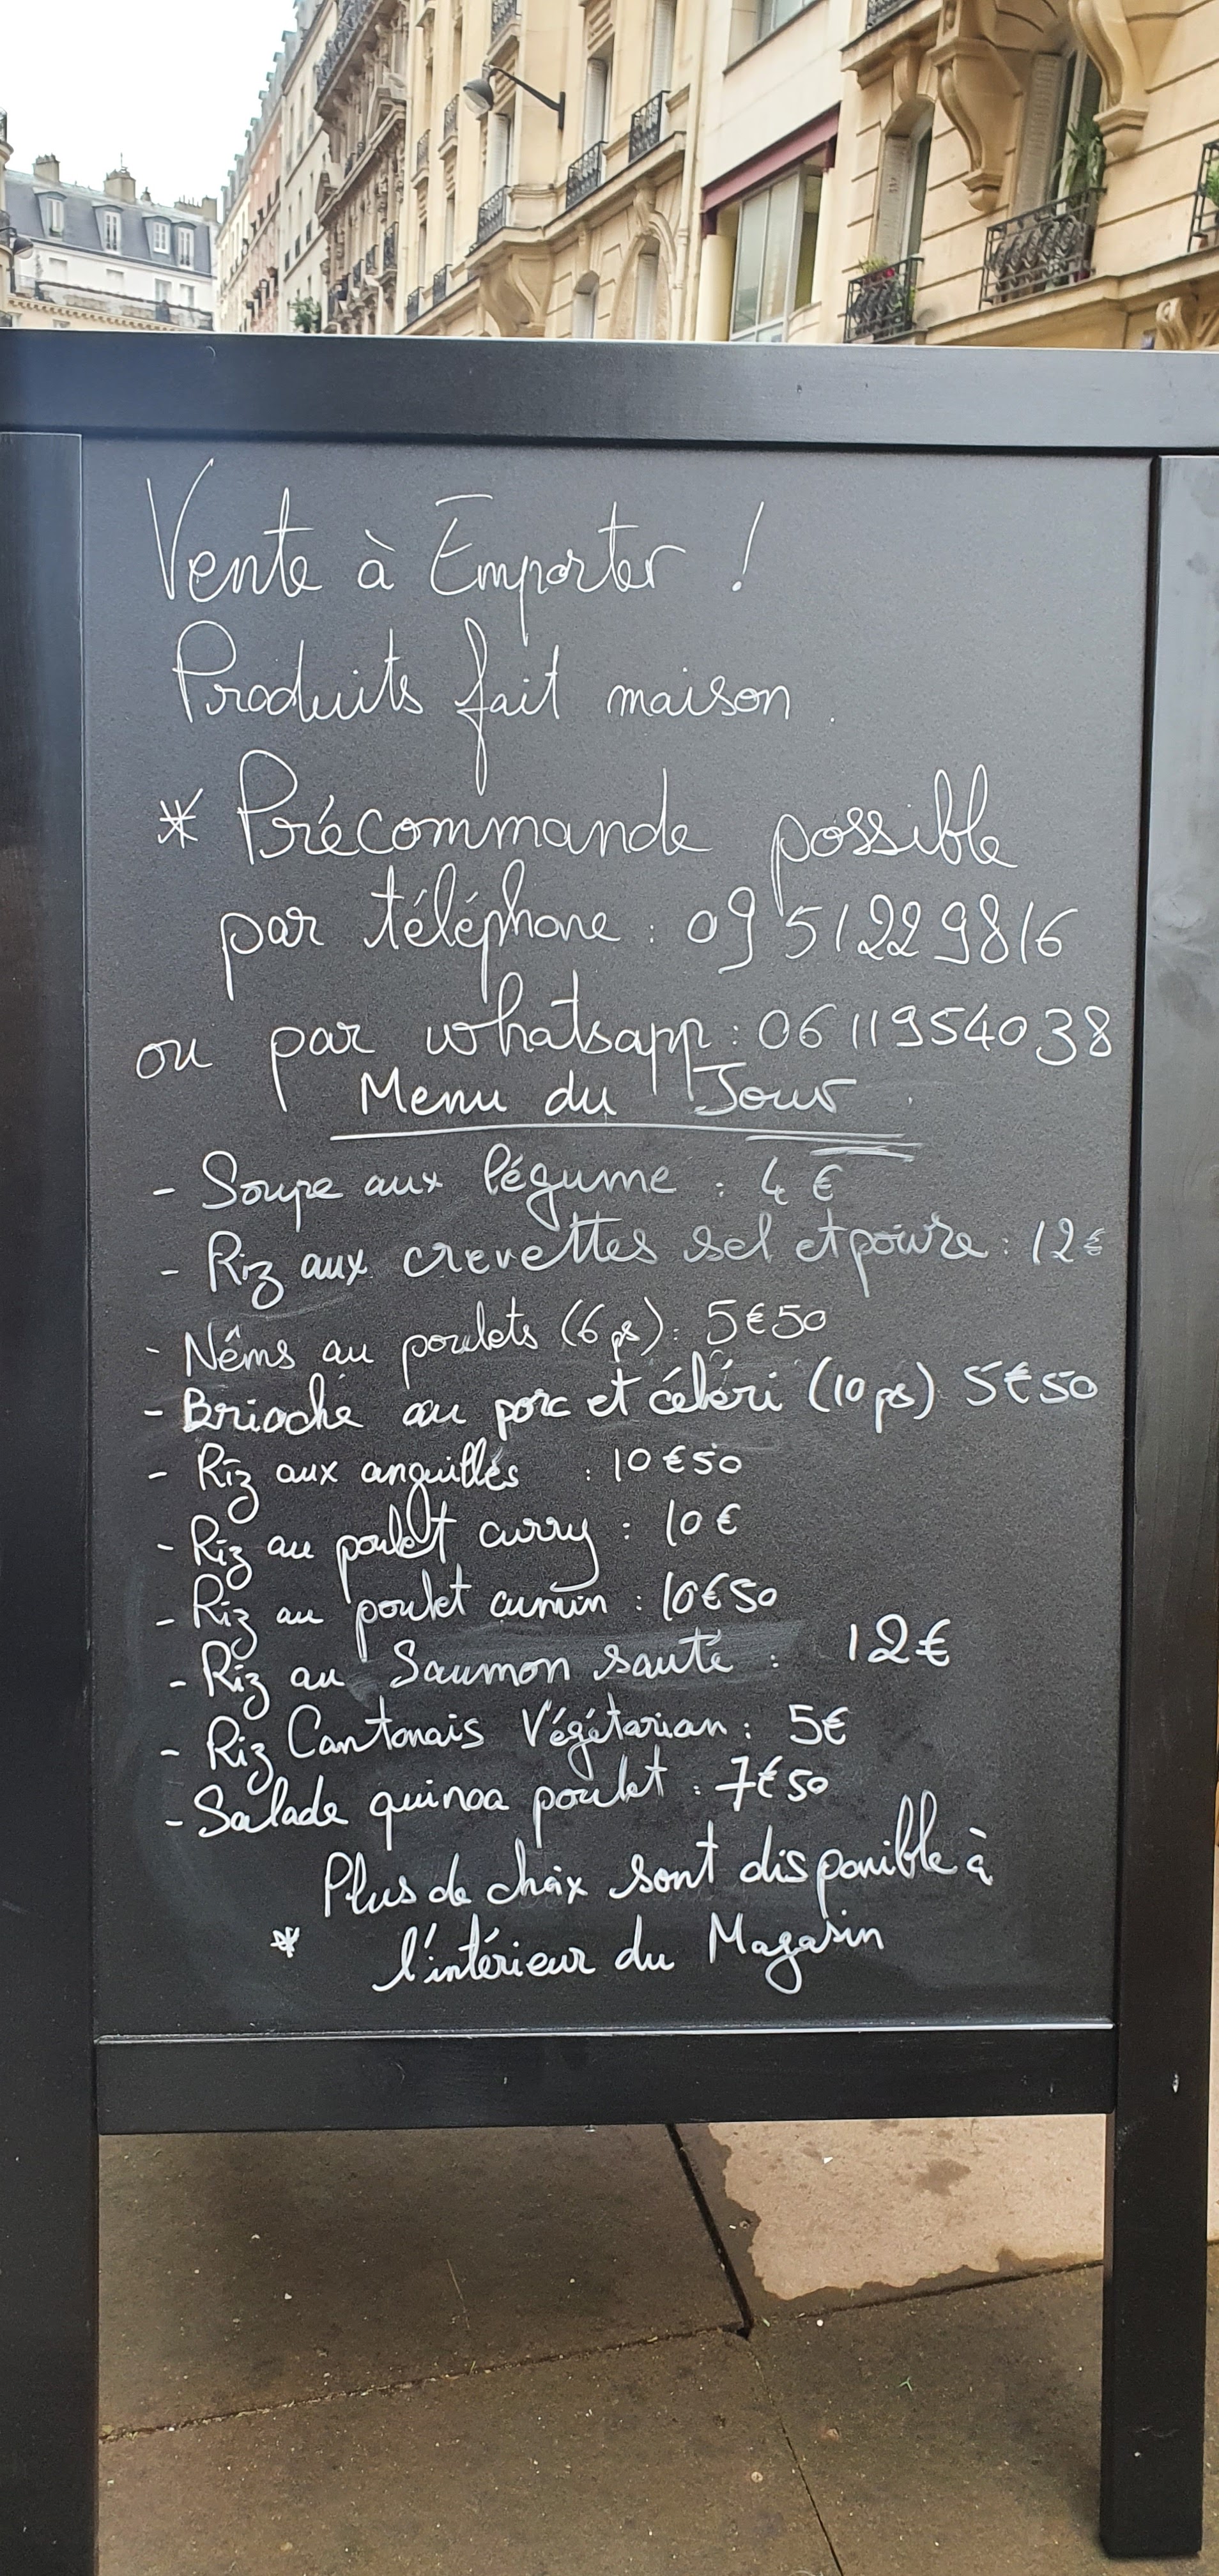 Vente à Emporter !
Produits fait maison.
* Précommande possible
par téléphone : 09 51229816
ou par whatsapp : 06 11954038
Menu du Jour
- Soupe aux légume : 4 €
- Riz aux crevettes sel et poivre : 12€
- Nêms au poulets (6 ps) : 5€50
- Brioche au porc et céleri (10 ps) 5€50
- Riz aux anguilles : 10€50
- Riz au poulet curry : 10€
- Riz au poulet cumin : 10€50
- Riz au Saumon sauté : 12€
- Riz Cantonais Végétarian : 5€
- Salade quinoa poulet : 7€50
Plus de choix sont disponible à
* l'intérieur du Magasin